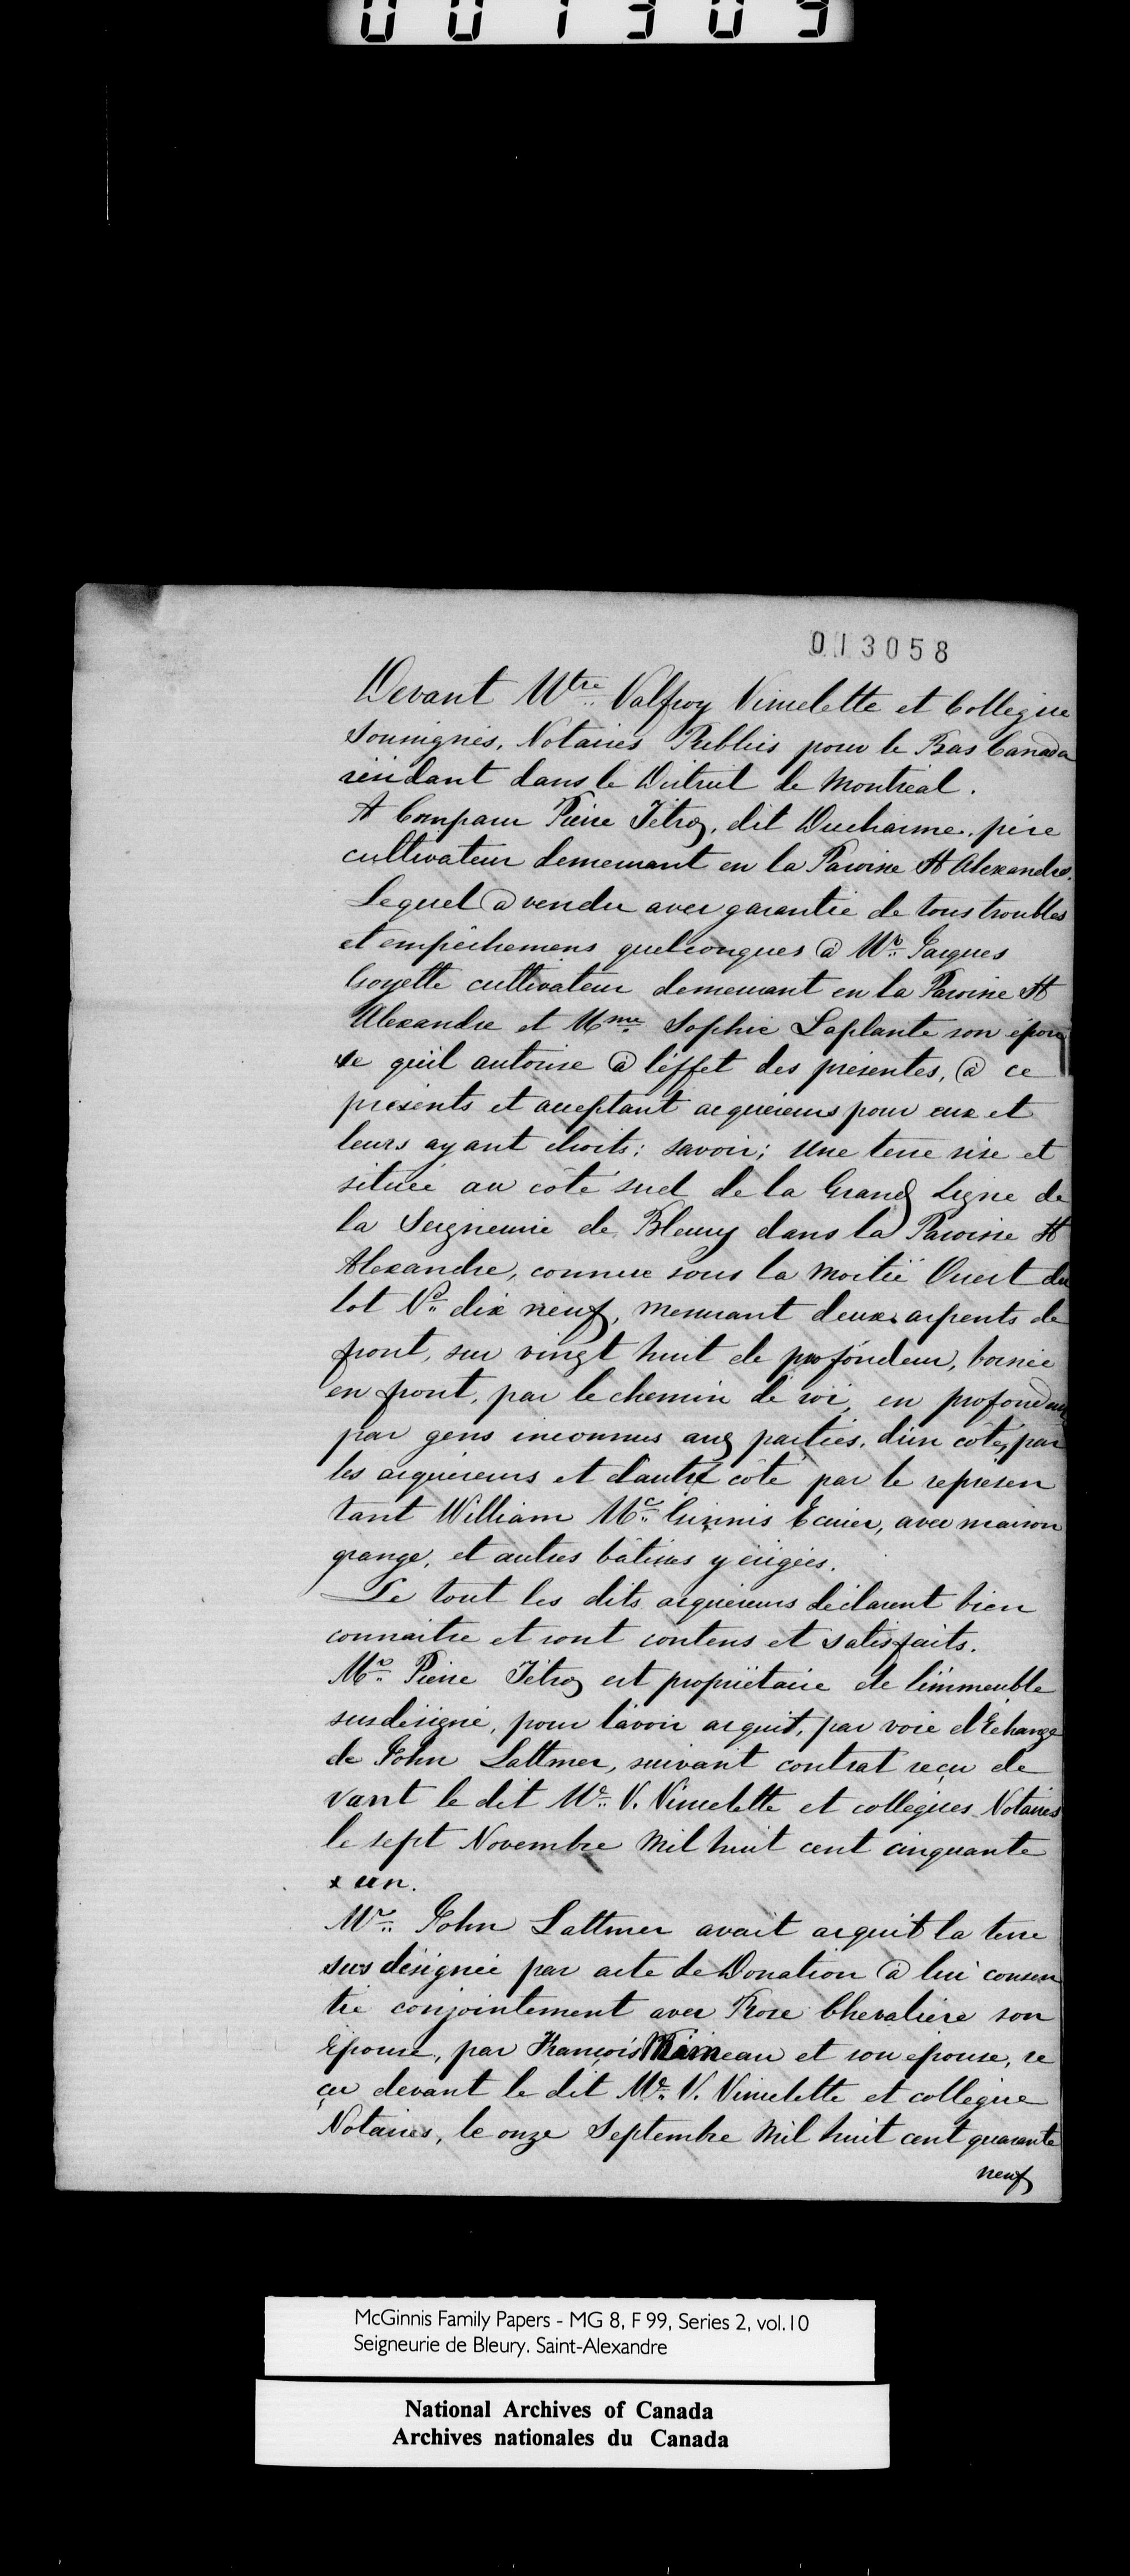 001309
013058
Devant Mtre Valfroy Vincelette et Collègue
Soussignés, Notaires Publics pour le Bas Canada
résidant dans le District de Montréal.
A Comparu Pierre Tétros, dit Ducharme, père
cultivateur demeurant en la Paroisse St Alexandre.
Lequel a vendu avec garantie de tous troubles
et empêchemens quelconques à Mr. Jacques
Goyette cultivateur demeurant en la Paroisse St
Alexandre et Mme Sophie Laplante son épou
se qu'il autorise à l'éffet des présentes, à ce
présents et acceptant acquéreurs pour eux et
leurs ayant droits: savoir; Une terre sise et
située au côté sud de la Grand Ligne de
la Seigneurie de Bleury dans la Paroisse St
Alexandre, connue sous la moitié Ouest du
lot No. dix neuf, mesurant deux arpents de
front, sur vingt huit de profondeur, bornée
en front, par le chemin de roi, en profondeur
par gens inconnus aux parties, d'un côté, par
les acquéreurs et d'autre côté par le représen
tant William Mc. Ginnis Ecuier, avec maison
grange, et autres bâtisses y érigées.
Le tout les dits acquéreurs déclarent bien
connaitre et sont contens et satisfaits.
Mr. Pierre Tétros est propriétaire de l'immeuble
susdésigné, pour l'avoir acquit, par voie d'Echange
de John Lattmer, suivant contrat reçu de
vant le dit Me. V. Vincelette et collègues Notaires
le sept Novembre Mil huit cent cinquante
x un.
Mr. John Lattmer avait acquit la terre
sus désignée par acte de Donation à lui consen
tie conjointement avec Rose Chevalière son
Epouse, par François et son épouse, re
çu devant le dit Me. V. Vincelette et collègue
Notaires, le onze Septembre Mil huit cent quarante
neuf
McGinnis Family Papers - MG 8, F 99, Series 2, vol.10
Seigneurie de Bleury. Saint-Alexandre
National Archives of Canada
Archives nationales du Canada